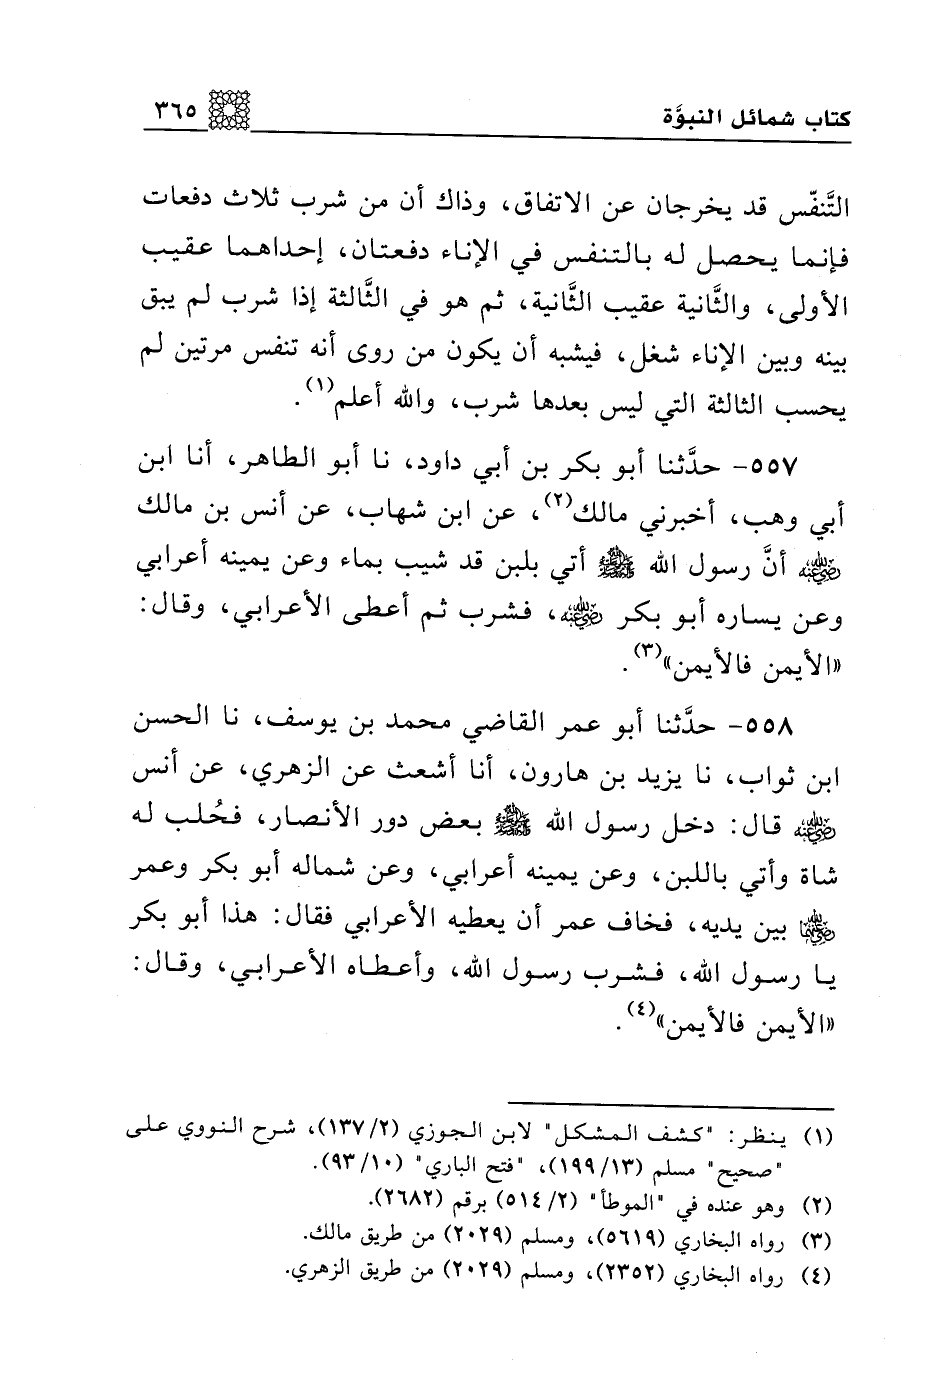 كتاب شمائل النبوَّة ٣٦٥
التَّنفّس قد يخرجان عن الاتفاق، وذاك أن من شرب ثلاث دفعات
فإنما يحصل له بالتنفس في الإناء دفعتان، إحداهما عقيب
الأولى، والثَّانية عقيب الثَّانية، ثم هو في الثَّالثة إذا شرب لم يبق
بينه وبين الإناء شغل، فيشبه أن يكون من روى أنه تنفس مرتين لم
يحسب الثالثة التي ليس بعدها شرب، والله أعلم(١).
٥٥٧- حدَّثنا أبو بكر بن أبي داود، نا أبو الطاهر، أنا ابن
أبي وهب، أخبرني مالك(٢)، عن ابن شهاب، عن أنس بن مالك
رضي الله عنه أنَّ رسول الله ﷺ أتي بلبن قد شيب بماء وعن يمينه أعرابي
وعن يساره أبو بكر رضي الله عنه، فشرب ثم أعطى الأعرابي، وقال:
«الأيمن فالأيمن»(٣).
٥٥٨- حدَّثنا أبو عمر القاضي محمد بن يوسف، نا الحسن
ابن ثواب، نا يزيد بن هارون، أنا أشعث عن الزهري، عن أنس
رضي الله عنه قال: دخل رسول الله ﷺ بعض دور الأنصار، فحُلب له
شاة وأتي باللبن، وعن يمينه أعرابي، وعن شماله أبو بكر وعمر
رضي الله عنهما بين يديه، فخاف عمر أن يعطيه الأعرابي فقال: هذا أبو بكر
يا رسول الله، فشرب رسول الله، وأعطاه الأعرابي، وقال:
«الأيمن فالأيمن»(٤).
(١) ينظر: "كشف المشكل" لابن الجوزي (١٣٧/٢)، شرح النووي على
"صحيح" مسلم (١٩٩/١٣)، "فتح الباري" (٩٣/١٠).
(٢) وهو عنده في "الموطأ" (٥١٤/٢) برقم (٢٦٨٢).
(٣) رواه البخاري (٥٦١٩)، ومسلم (٢٠٢٩) من طريق مالك.
(٤) رواه البخاري (٢٣٥٢)، ومسلم (٢٠٢٩) من طريق الزهري.